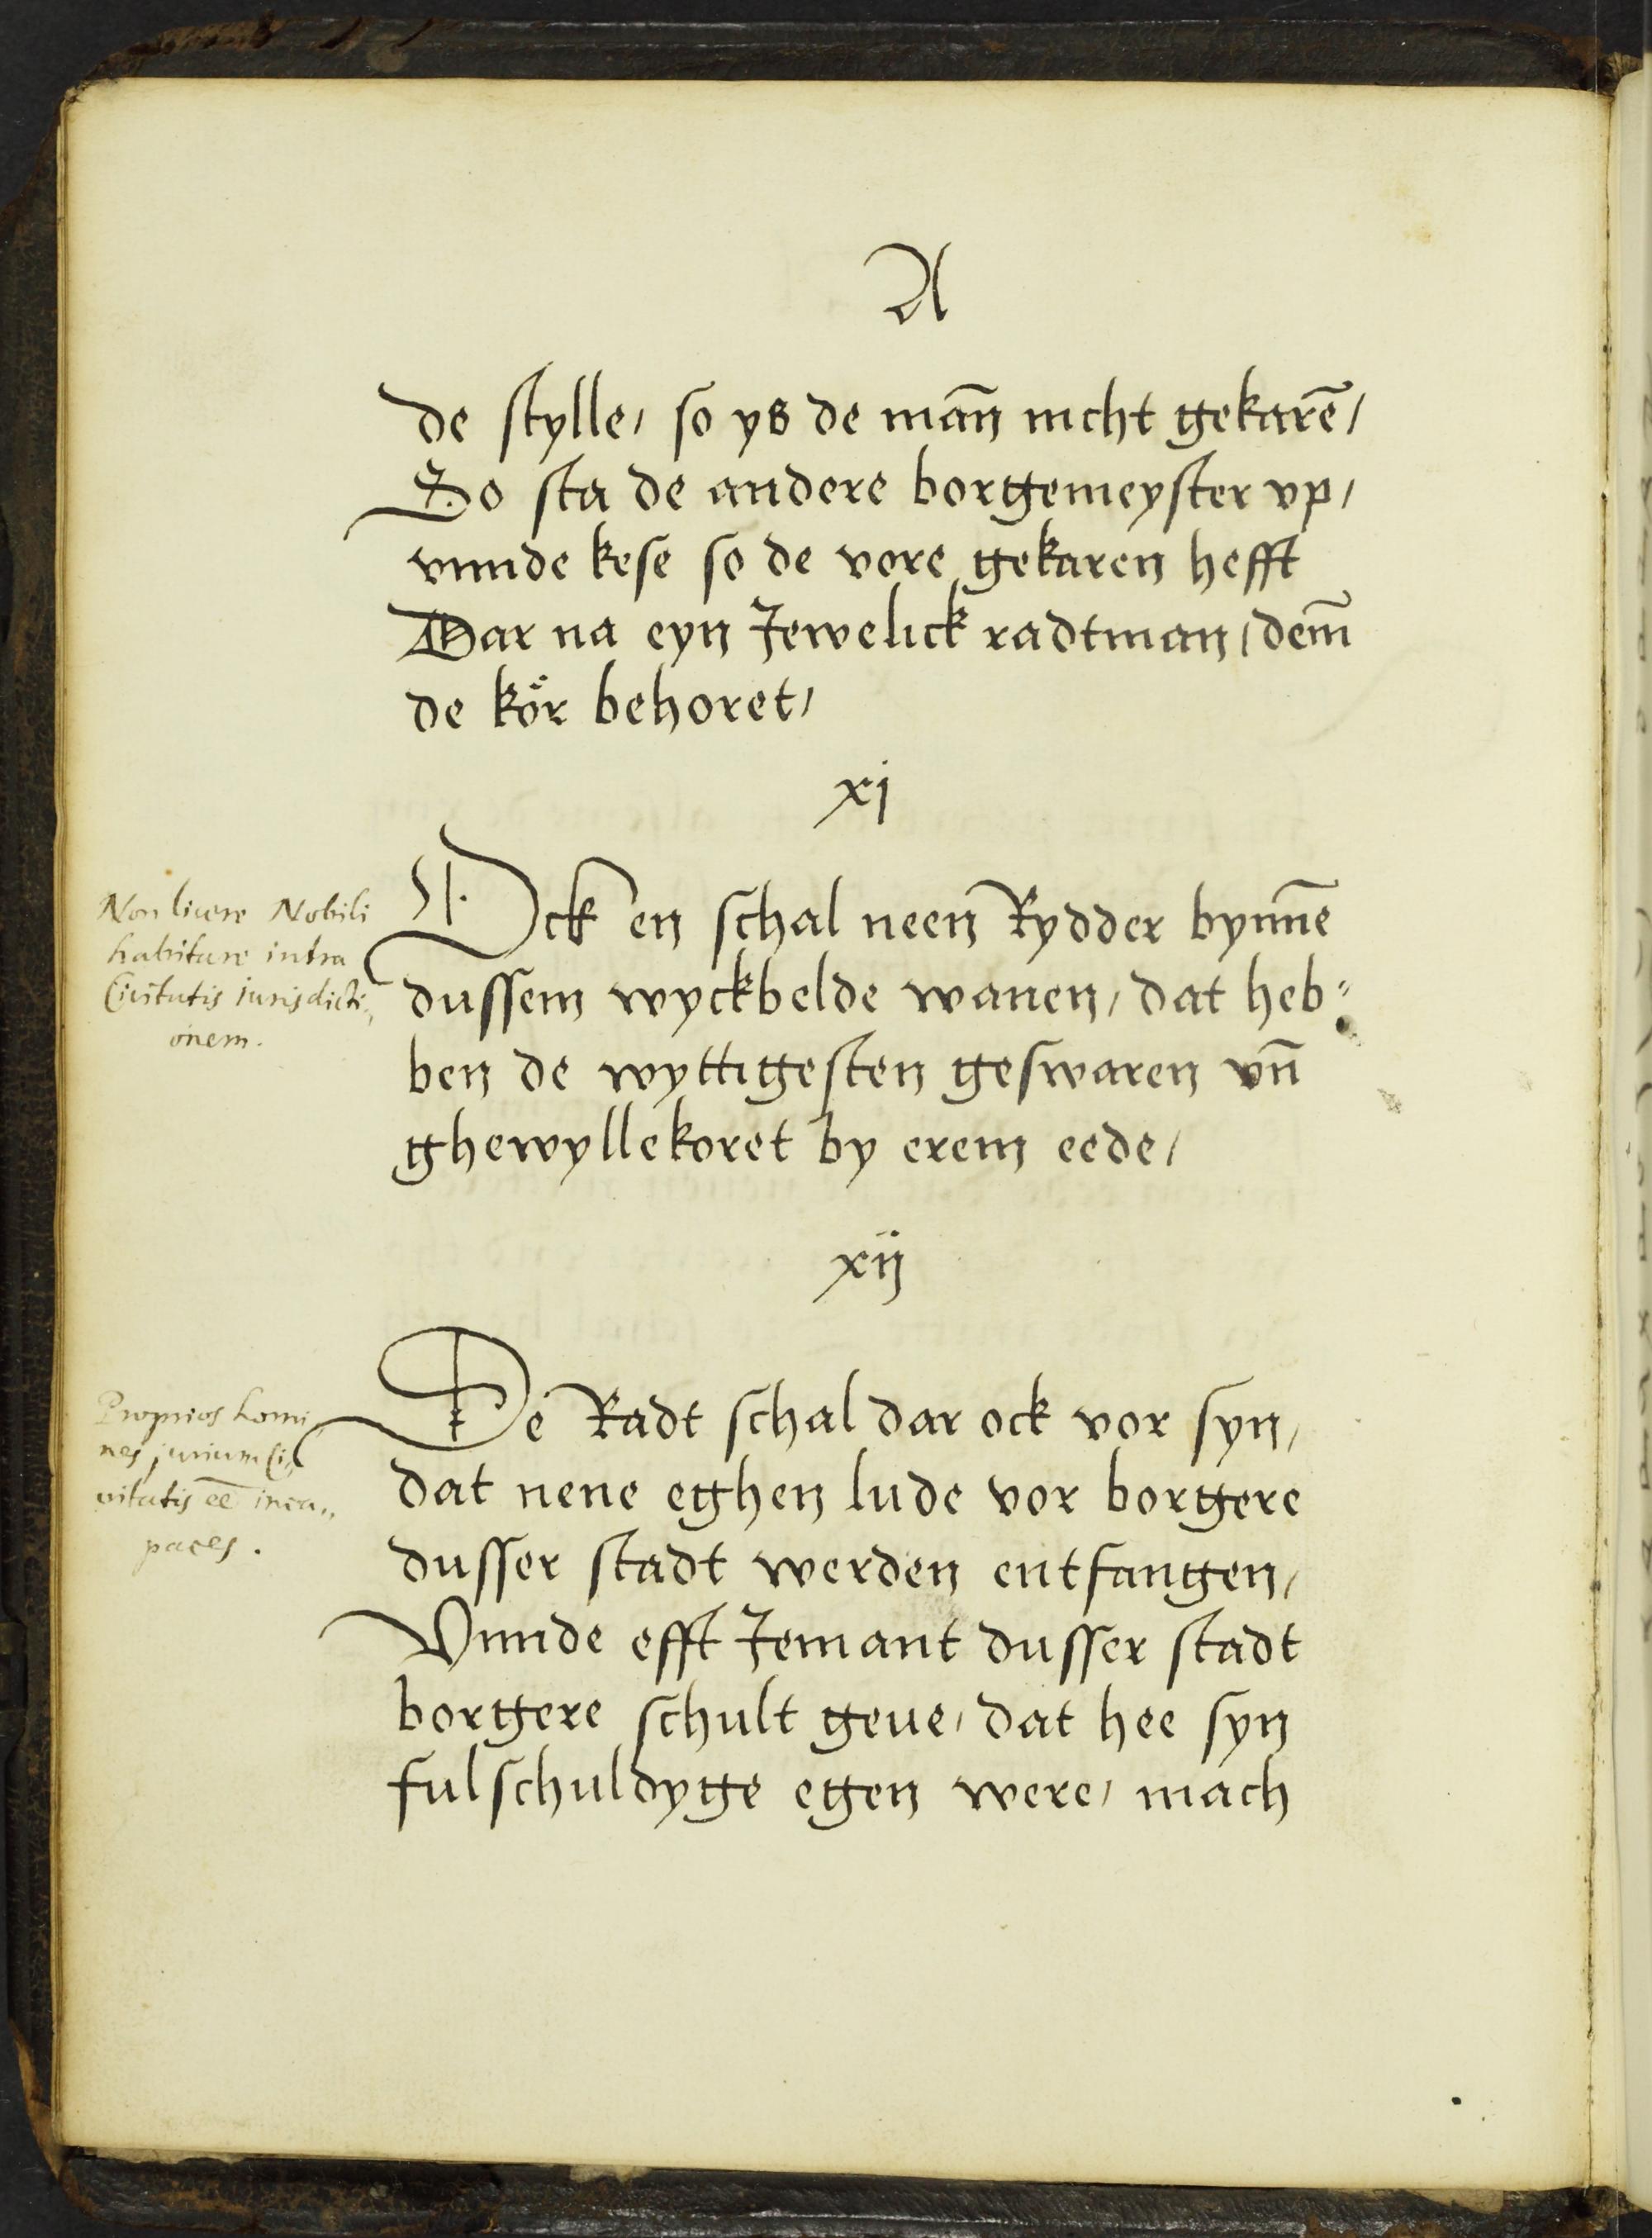 A
de stylle, so ys de mañ nicht gekarē,
So sta de andere borgemeyster vp,
vnnde kese so de vore gekaren hefft
Dar na eyn Jewelick radtman, dem̄
de kör behoret,
xj
Ock en schal neen Rydder bynnē
dussem wyckbelde wanen, dat heb⸗
ben de wyttigesten geswaren vn̄
ghewyllekoret by erem eede,
Non licere Nobili
habitare intra
Civitatis jurisdicti„
onem.
xij
De Radt schal dar ock vor syn,
dat nene eghen lude vor borgere
dusser stadt werden entfangen,
Vnnde efft Jemant dusser stadt
borgere schult geue, dat hee syn
fulschuldyge egen were, mach
Proprios homi„
nes jurium Ci„
vitatis eē inca„
paces.